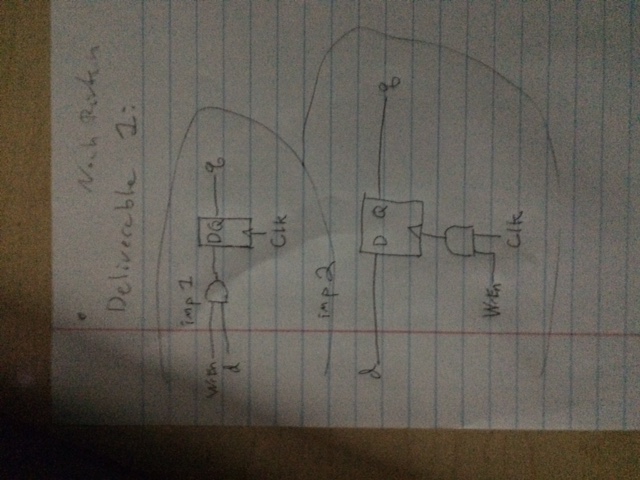 Deliverable 1:
imp 1
WrEn
d
D Q
q
Clk
imp 2
d
D Q
q
WrEn
Clk